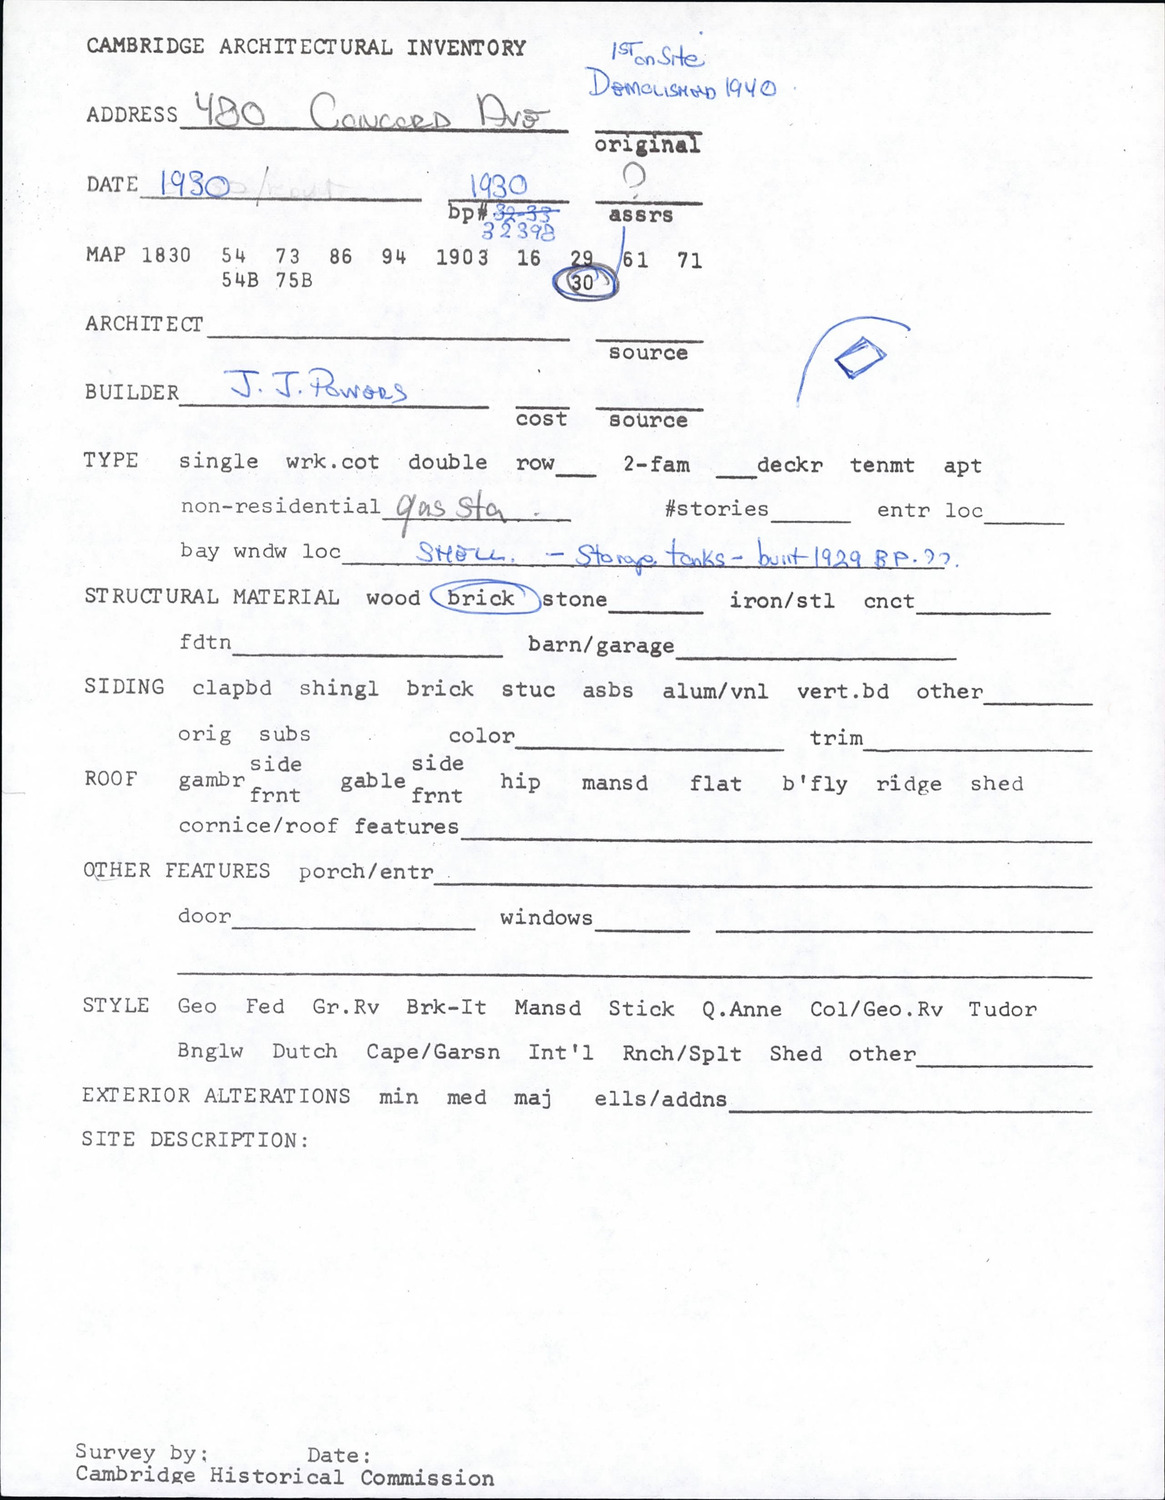 CAMBRIDGE ARCHITECTURAL INVENTORY
1ST on Site
DEMOLISHED 1940
ADDRESS 480 CONCORD AVE
original
DATE 1930 1930 ?
bp# 32-33 assrs
32398
MAP 1830 54 73 86 94 1903 16 29 61 71
54B 75B 30
ARCHITECT
source
BUILDER J. J. POWERS
cost source
TYPE single wrk.cot double row 2-fam deckr tenmt apt
non-residential gas sta. #stories entr loc
bay wndw loc SHELL. - Storage tanks - built 1929 BP.??.
STRUCTURAL MATERIAL wood brick stone iron/stl cnct
fdtn barn/garage
SIDING clapbd shingl brick stuc asbs alum/vnl vert.bd other
orig subs color trim
side side
ROOF gambr gable hip mansd flat b'fly ridge shed
frnt frnt
cornice/roof features
OTHER FEATURES porch/entr
door windows
STYLE Geo Fed Gr.Rv Brk-It Mansd Stick Q.Anne Col/Geo.Rv Tudor
Bnglw Dutch Cape/Garsn Int'l Rnch/Splt Shed other
EXTERIOR ALTERATIONS min med maj ells/addns
SITE DESCRIPTION:
Survey by: Date:
Cambridge Historical Commission